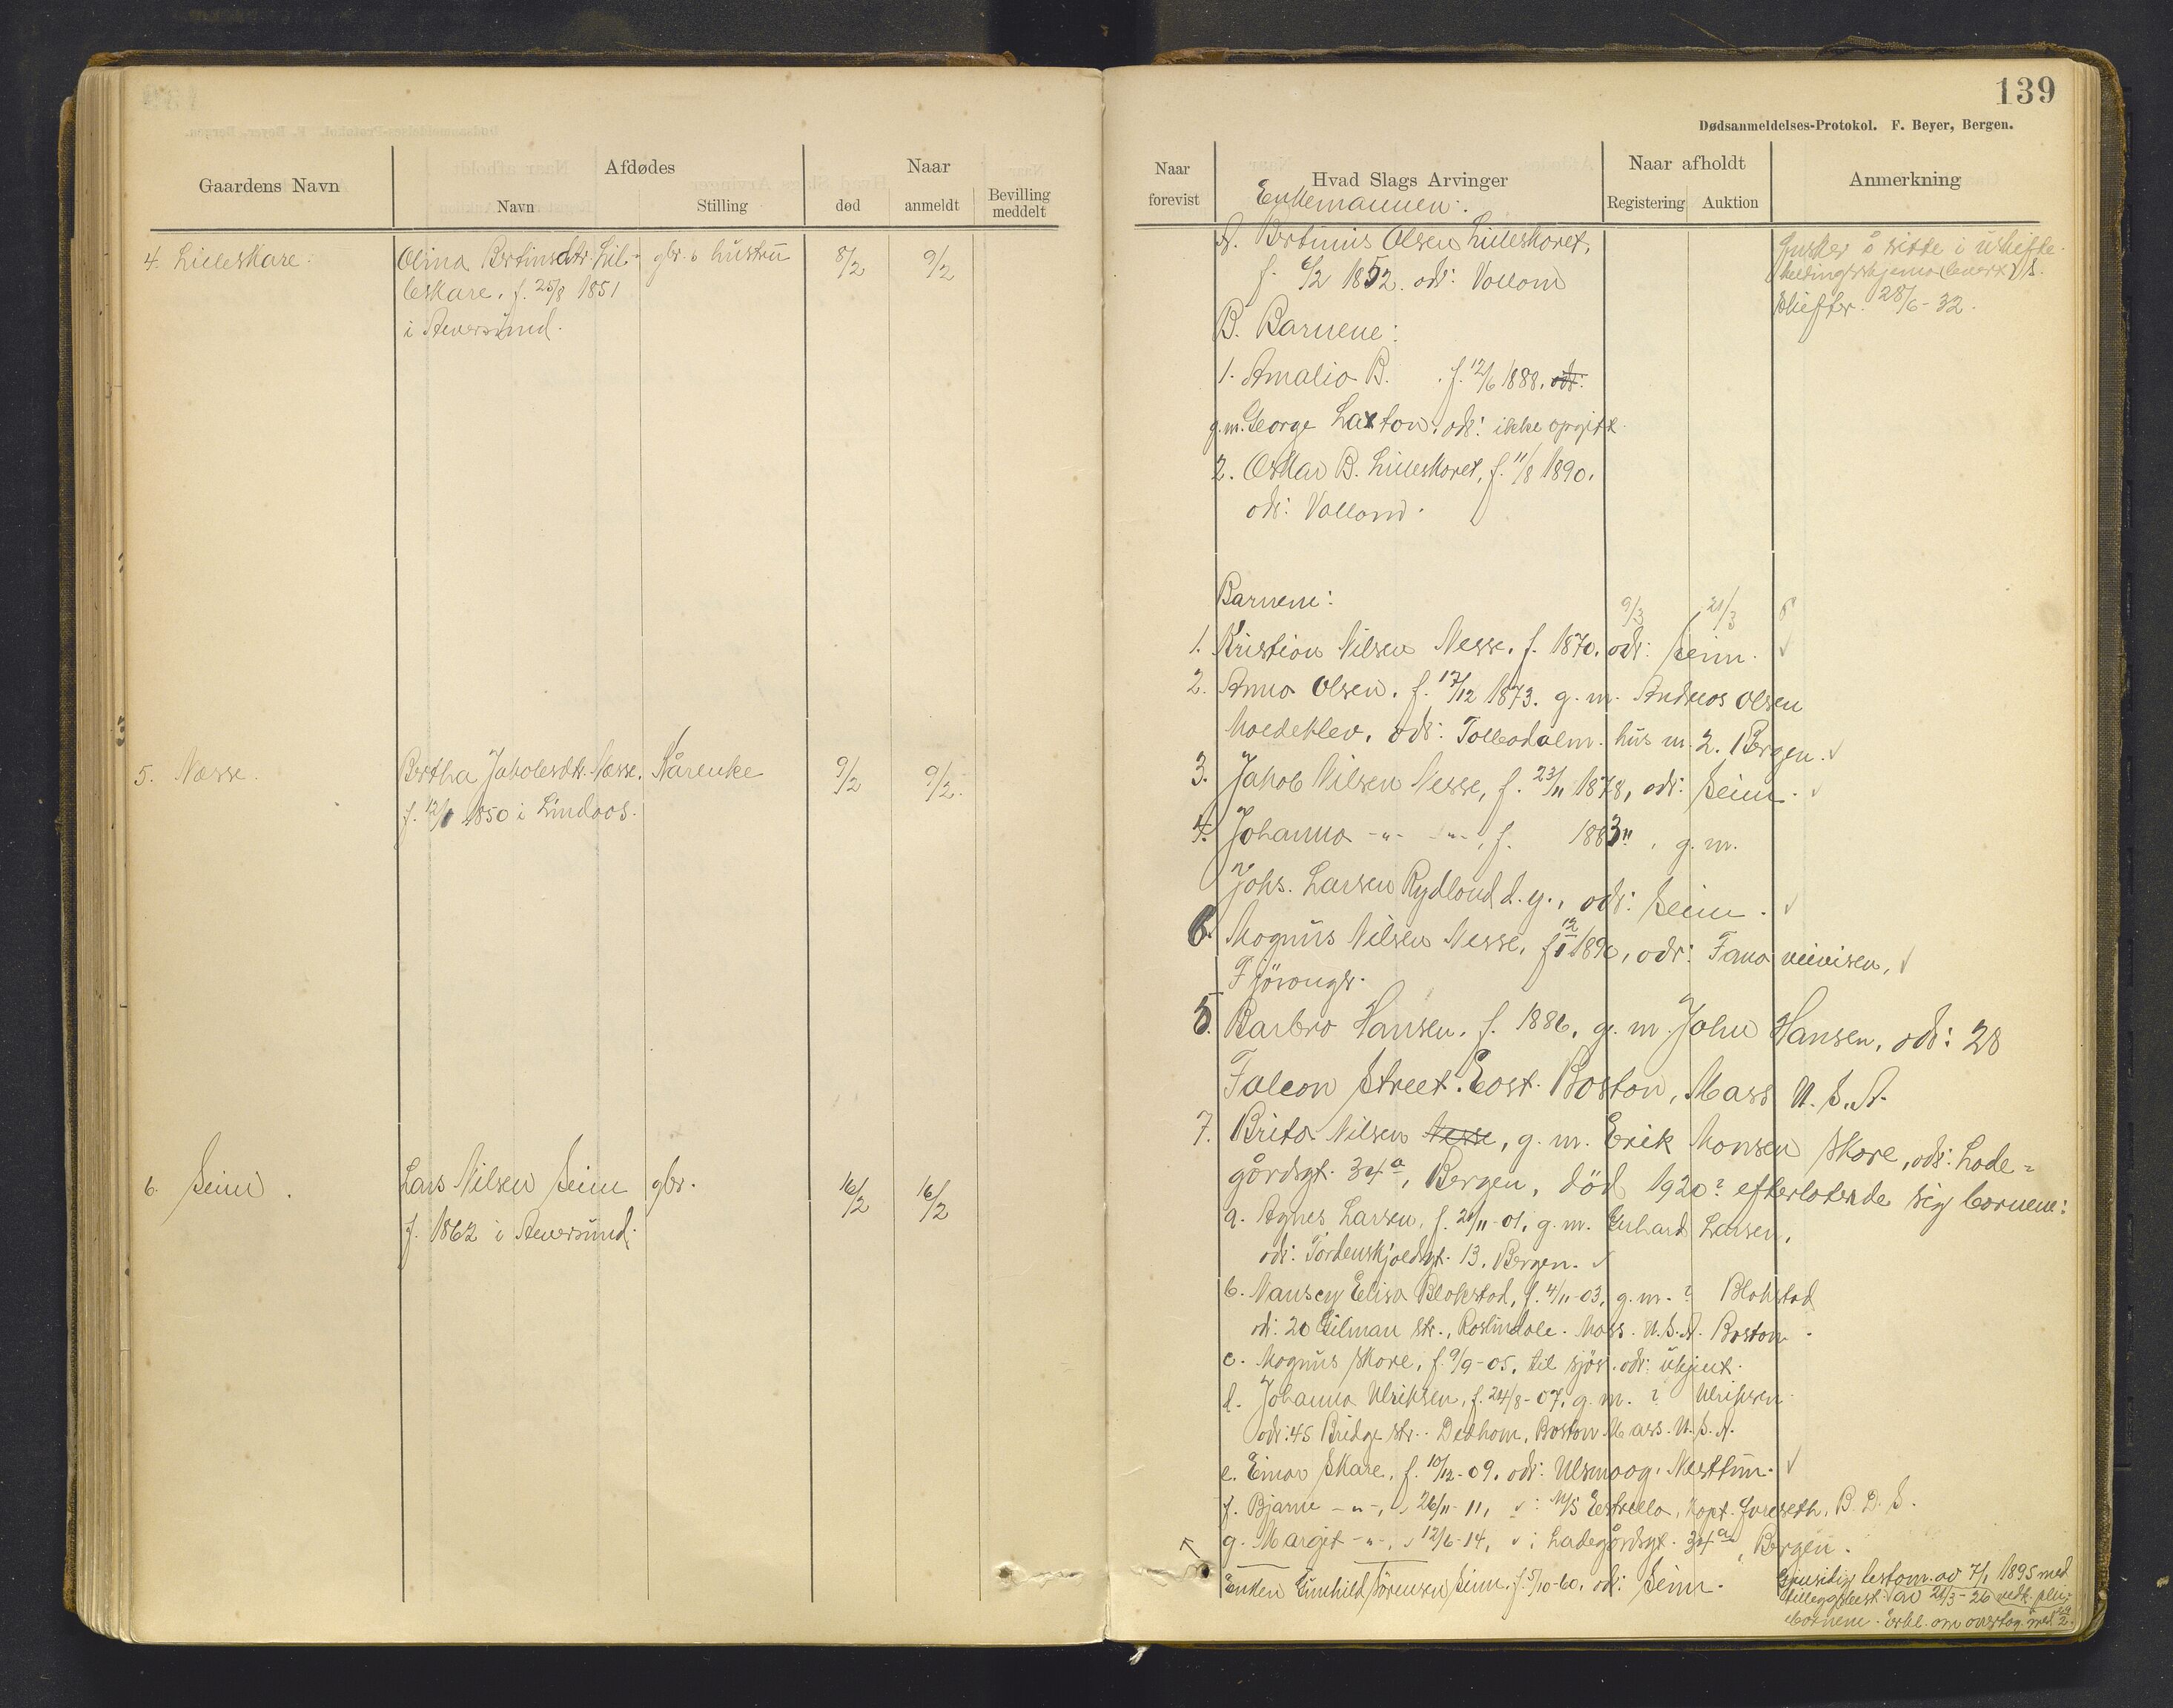 Gaardens Navn
Afdødes
Navn
Stilling
Naar
død
anmeldt
Bevilling
meddelt
4. Lilleskare.
Olina Bertinsdtr. Lil-
leskare. f. 25/8 1851
i Alversund.
gbr.s hustru
8/2
9/2
5. Nesse.
Bertha Jakobsdtr. Nesse.
f. 12/1 1850 i Lindaas.
Kårenke
9/2
9/2.
6. Seim.
Lars Nilsen Seim
f. 1862 i Alversund.
gbr.
16/2
16/2
139
Dødsanmeldelses-Protokol. F. Beyer, Bergen.
Naar
forevist
Hvad Slags Arvinger
Naar afholdt
Registering
Auktion
Anmerkning
Enkemannen:
A. Bertinius Olsen Lilleskaret,
f. 6/2 1852. adr: Valland
B. Barnene:
1. Amalia B. f. 12/6 1888. adr:
g.m. George Laxton. adr: ikke opgitt.
2. Oskar B. Lilleskaret, f. 11/8 1890.
adr: Valland.
Ønsker å sitte i uskifte.
28/6-32.
Barnene:
9/3
21/3
1. Kristian Nilsen Nesse. f. 1870. adr: Seim.
2. Anna Olsen. f. 17/12 1873. g. m. Andreas Olsen
adr: Tollbodalm. hus nr. 2. Bergen.
3. Jakob Nilsen Nesse, f. 23/11 1878, adr: Seim.
4. Johanna -"- -"-, f. 1883, g. m.
Johs. Larsen Rydland d.y., adr: Seim.
6. Magnus Nilsen Nesse, f 12/1 1890, adr: Fana veivesen,
Fjøsanger.
5. Barbro Hansen. f. 1886, g. m. John Hansen, adr: 28
Falcon Street. East Boston, Mass U. S. A.
7. Brita Nilsen Nesse, g. m. Erik Monsen Skare, adr: Lade-
gårdsgt. 34a, Bergen, død 1920? efterlatende sig barnene:
a. Agnes Larsen, f. 21/11-01, g. m. Gerhard Larsen,
adr: Tordenskjoldsgt. 13, Bergen.
b. Nanscy Elisa Blokstad, f. 4/11-03, g. m. ? Blokstad
adr: 20 Gilman str., Roslindale. Mass. U. S. A. Boston.
c. Magnus Skare, f. 9/9-05, til sjøs. adr: ukjent.
d. Johanna Ulriksen, f. 24/8-07, g. m. ? Ulriksen
adr: 45 Bridge str.. Dedham, Boston Mass. U. S. A.
e. Einar Skare, f. 10/12-09, adr: Ulsmaag, Nesttun.
f. Bjarne -"-, " 26/11-11, " : M/S Estrella, kapt. B. D. S.
g. Margit -"-, " 12/6-14, " : Ladegårdsgt. 34a, Bergen.
Enken Gunhild Sørensen Seim. f. 5/10-60. adr: Seim.
Gjensidig testam. av 7/1 1895 med
tilleggstest. av 21/3-26 vedk. plei-
barnene.